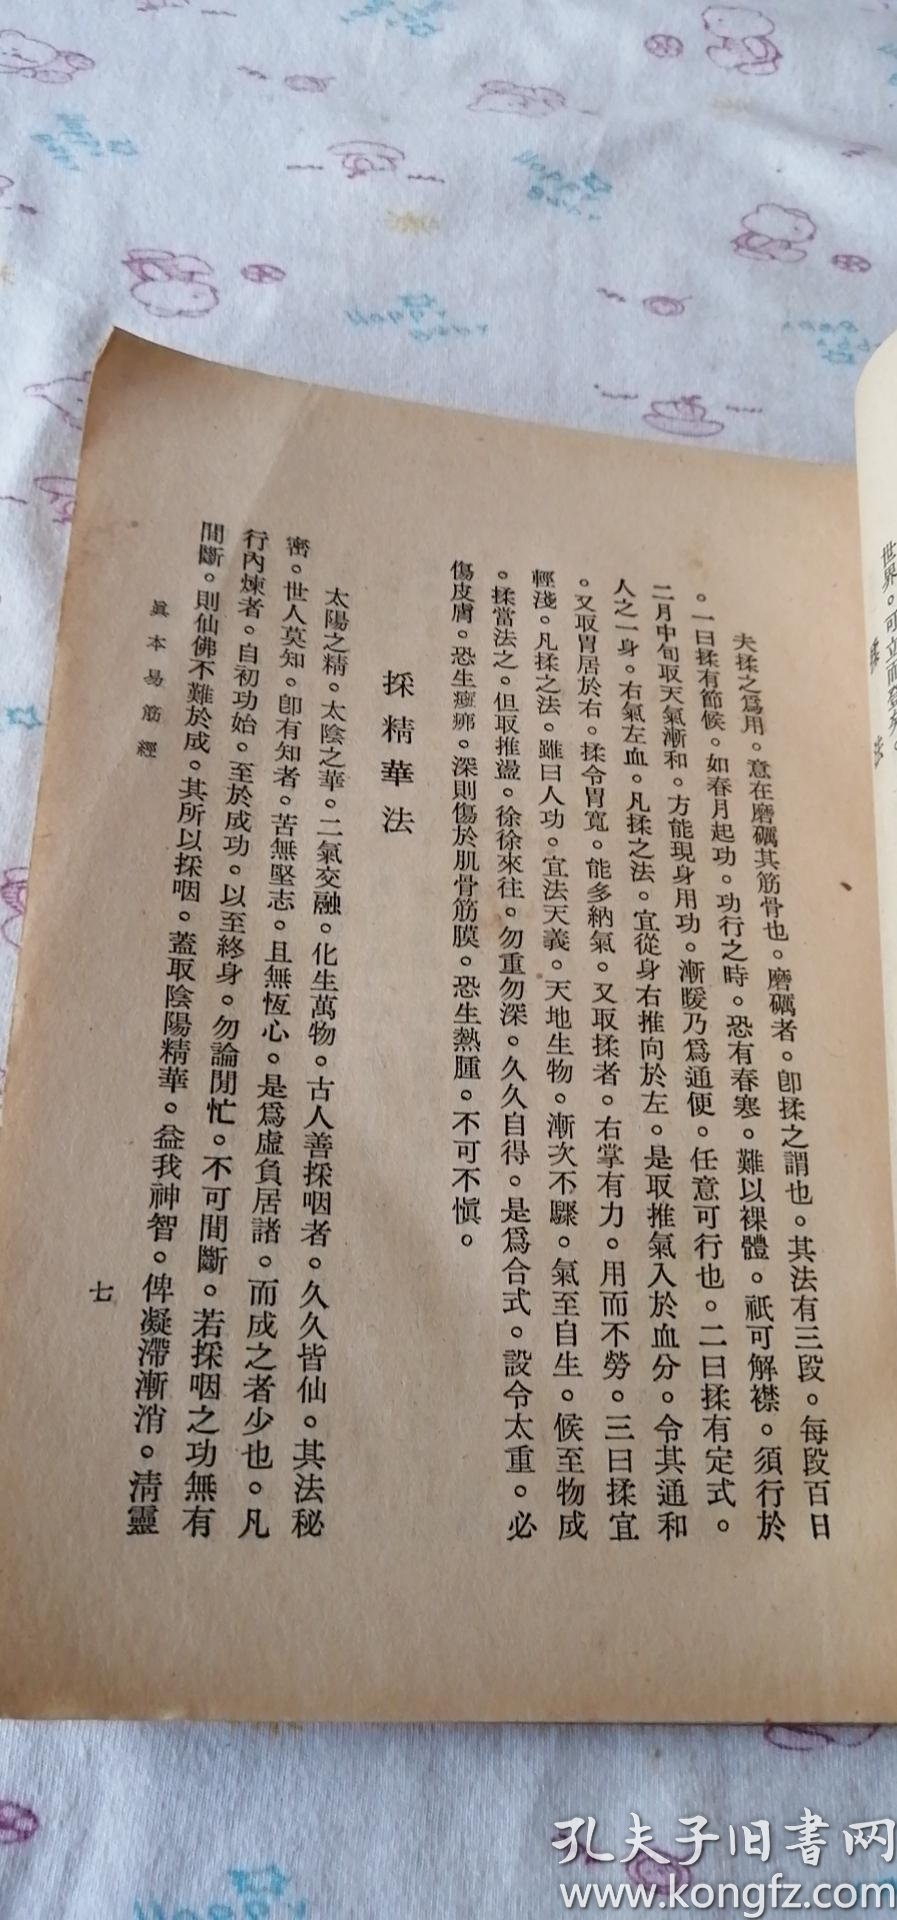 世界。可立而登矣。
揉法
夫揉之爲用。意在磨礪其筋骨也。磨礪者。卽揉之謂也。其法有三段。每段百日
。一曰揉有節候。如春月起功。功行之時。恐有春寒。難以裸體。祇可解襟。須行於
二月中旬取天氣漸和。方能現身用功。漸暖乃爲通便。任意可行也。二曰揉有定式。
人之一身。右氣左血。凡揉之法。宜從身右推向於左。是取推氣入於血分。令其通和
。又取胃居於右。揉令胃寬。能多納氣。又取揉者。右掌有力。用而不勞。三曰揉宜
輕淺。凡揉之法。雖曰人功。宜法天義。天地生物。漸次不驟。氣至自生。候至物成
。揉當法之。但取推盪。徐徐來往。勿重勿深。久久自得。是爲合式。設令太重。必
傷皮膚。恐生瘢痱。深則傷於肌骨筋膜。恐生熱腫。不可不愼。
採精華法
太陽之精。太陰之華。二氣交融。化生萬物。古人善採咽者。久久皆仙。其法秘
密。世人莫知。卽有知者。苦無堅志。且無恆心。是爲虛負居諸。而成之者少也。凡
行內煉者。自初功始。至於成功。以至終身。勿論閒忙。不可間斷。若採咽之功無有
間斷。則仙佛不難於成。其所以採咽。蓋取陰陽精華。益我神智。俾凝滯漸消。淸靈
眞本易筋經
七
孔夫子旧書网
www.kongfz.com